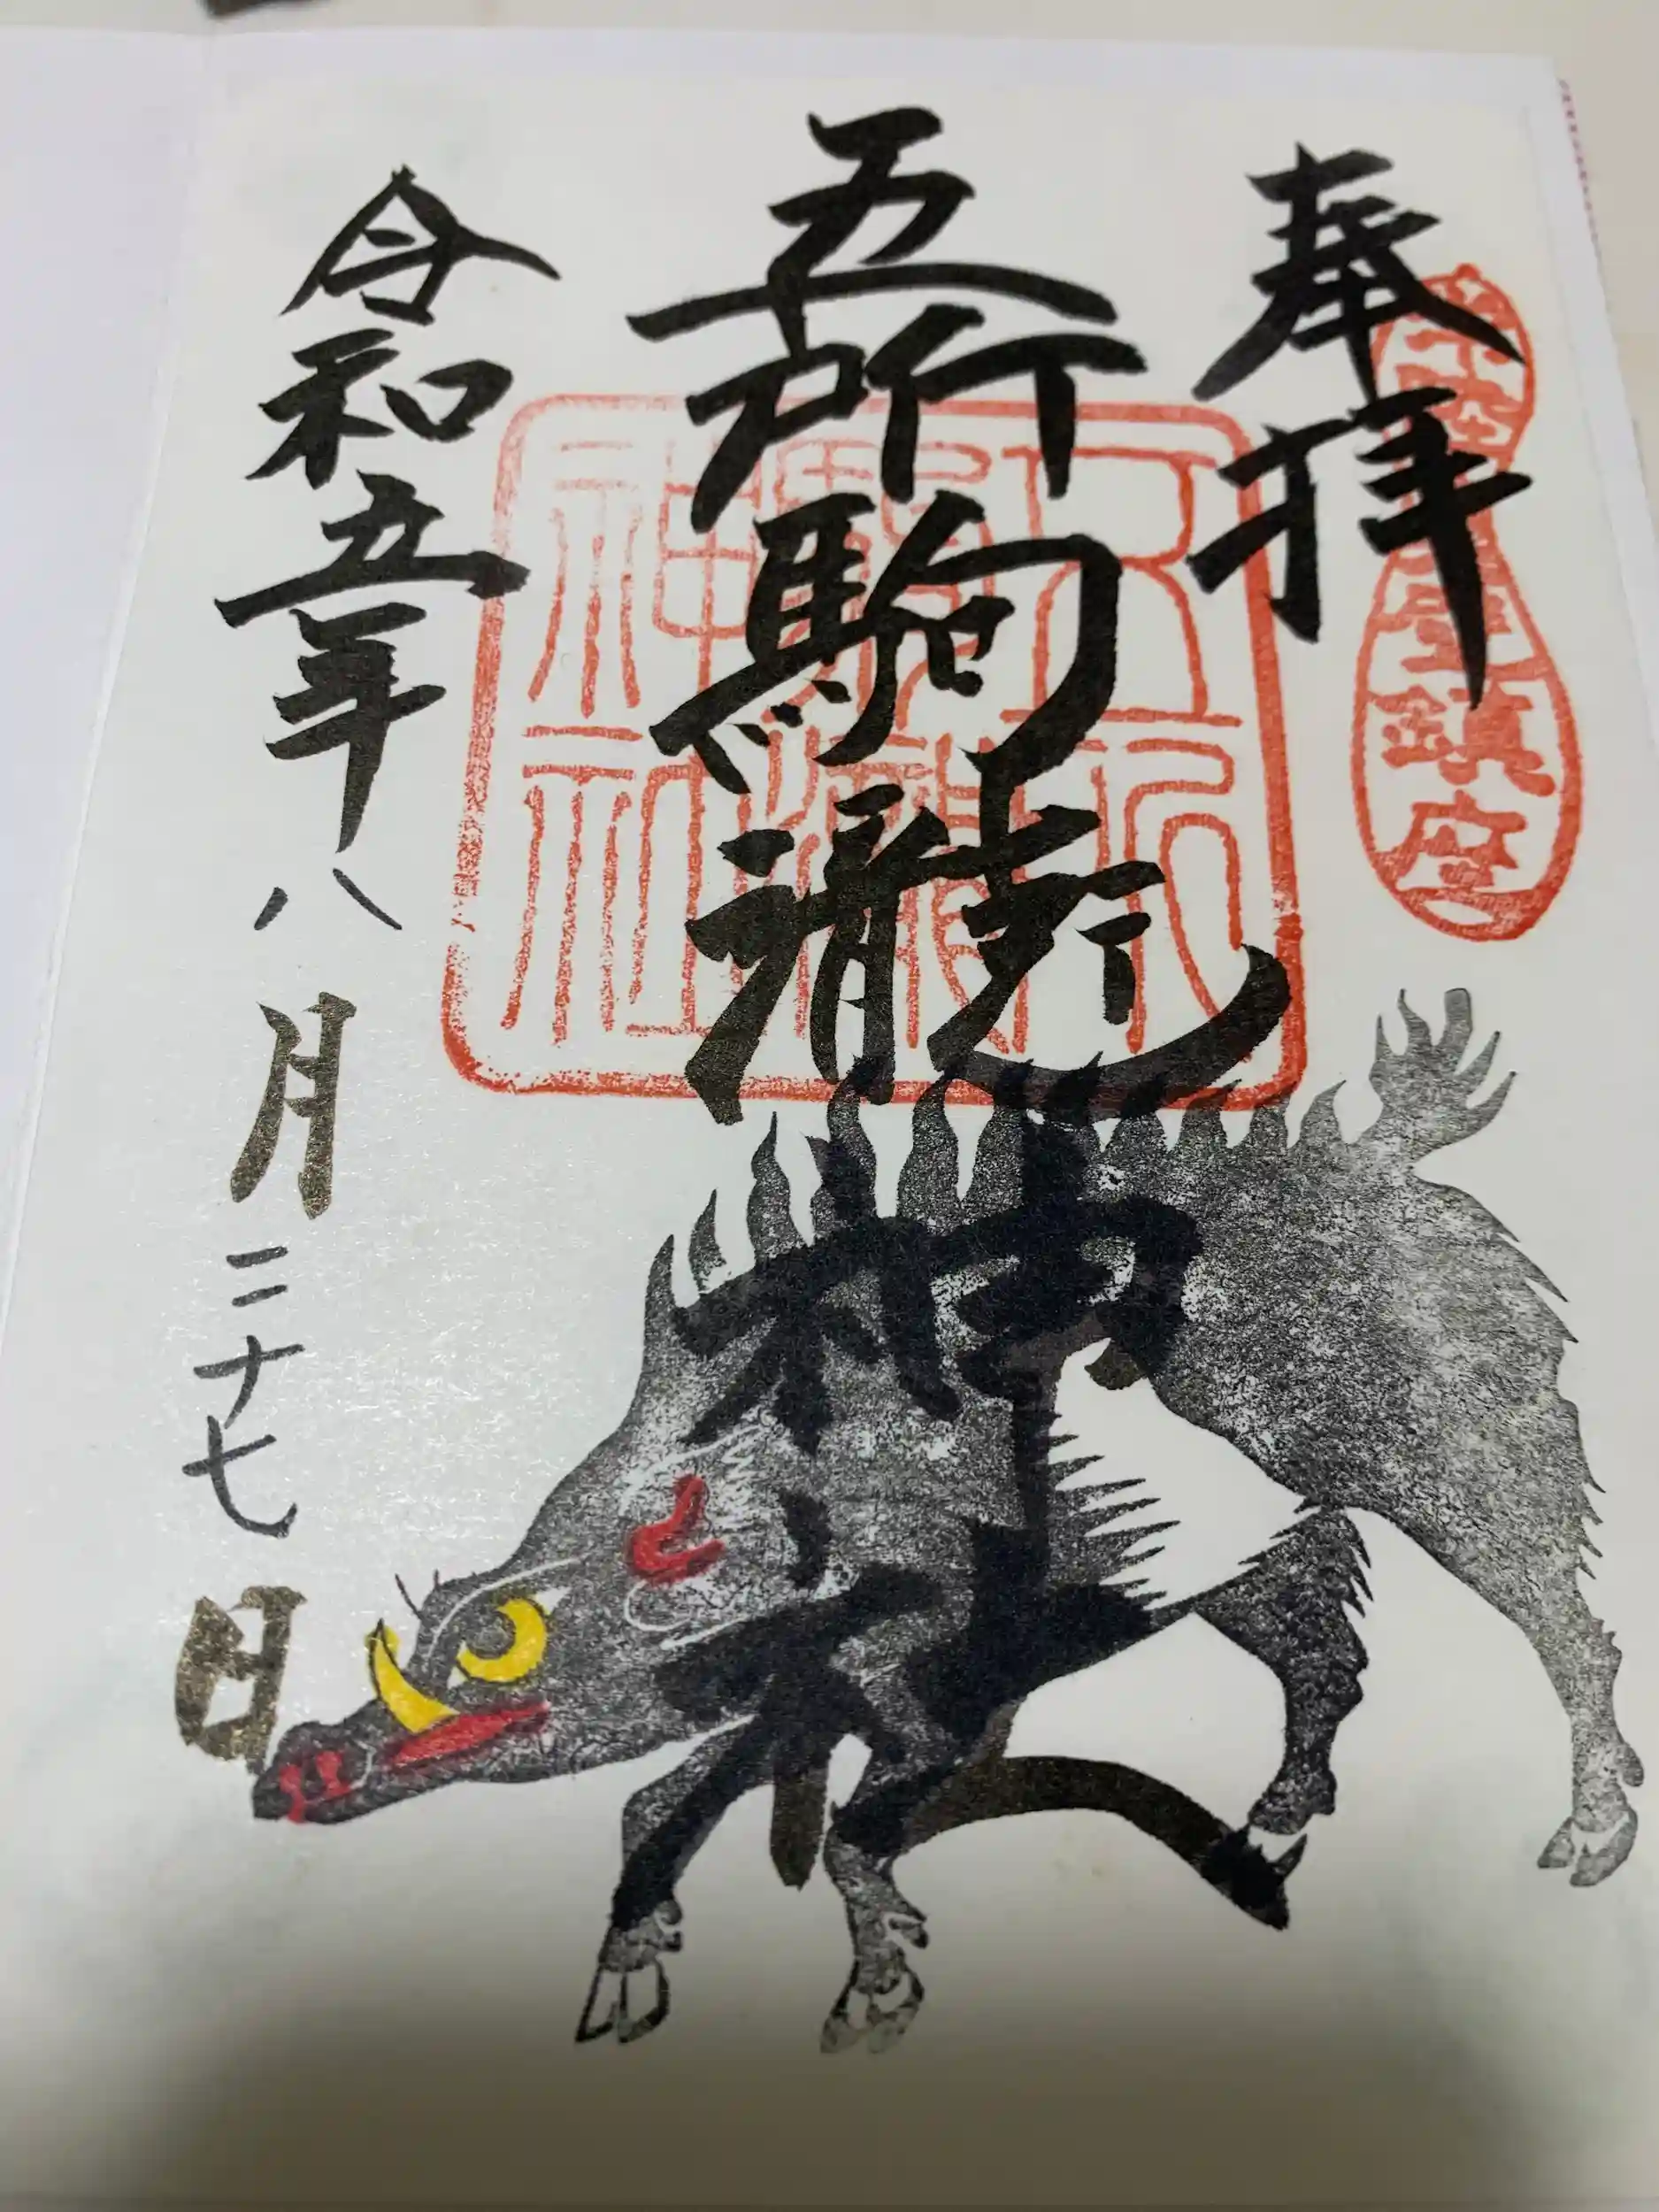 奉拝
鎮座
五所駒瀧神社
五所
駒瀧
神社
令和五年八月二十七日